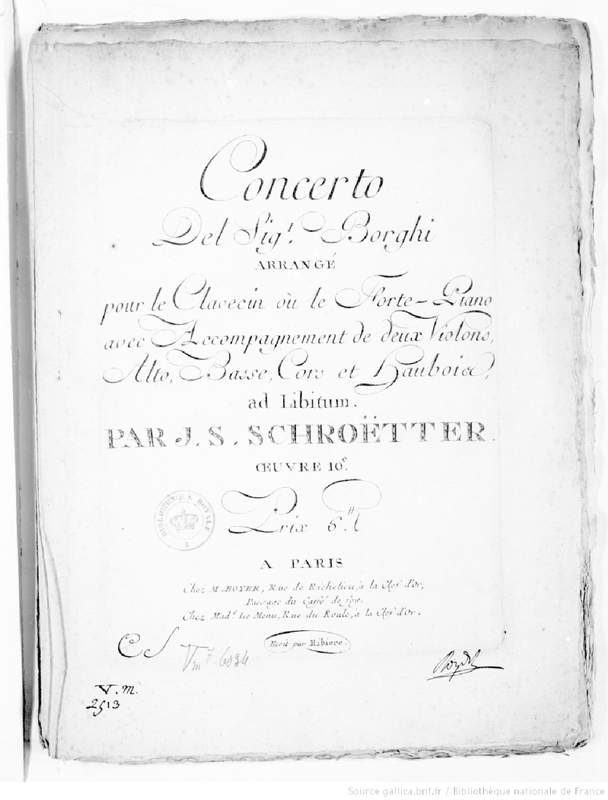 Concerto
Del Sigr. Borghi
ARRANGÉ
pour le Clavecin où le Forte-Piano
avec Accompagnement de deux Violons,
Alto, Basse, Cors et Hautbois,
ad Libitum.
PAR J. S. SCHROËTTER.
ŒUVRE 10e.
Prix 6.tt
A PARIS
Chez Mr. BOYER, Rue de Richelieu, à la Clef d'Or,
Passage du Caffé de foy.
Chez Made. Le Menu, Rue du Roule, à la Clef d'Or.
Ecrit par Ribiere
Vm 7. 6034
V. m.
2513
Source gallica.bnf.fr / Bibliothèque nationale de France